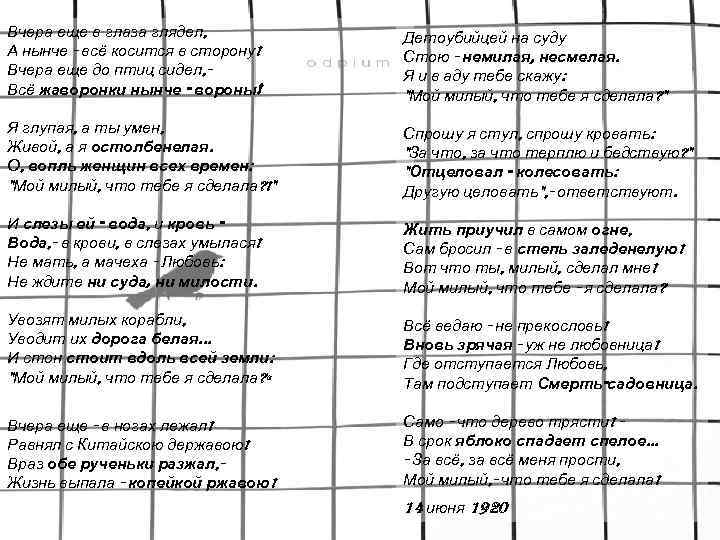 Вчера еще в глаза глядел,
А нынче -всё косится в сторону!
Вчера еще до птиц сидел,-
Всё жаворонки нынче - вороны!
Я глупая, а ты умен,
Живой, а я остолбенелая.
О, вопль женщин всех времен:
"Мой милый, что тебе я сделала?!"
И слезы ей - вода, и кровь -
Вода,-в крови, в слезах умылася!
Не мать, а мачеха -Любовь:
Не ждите ни суда, ни милости.
Увозят милых корабли,
Уводит их дорога белая...
И стон стоит вдоль всей земли:
"Мой милый, что тебе я сделала?"
Вчера еще -в ногах лежал!
Равнял с Китайскою державою!
Враз обе рученьки разжал,-
Жизнь выпала -копейкой ржавою!
odpium
Детоубийцей на суду
Стою -немилая, несмелая.
Я и в аду тебе скажу:
"Мой милый, что тебе я сделала?"
Спрошу я стул, спрошу кровать:
"За что, за что терплю и бедствую?"
"Отцеловал - колесовать:
Другую целовать",-ответствуют.
Жить приучил в самом огне,
Сам бросил -в степь заледенелую!
Вот что ты, милый, сделал мне!
Мой милый, что тебе -я сделала?
Всё ведаю -не прекословь!
Вновь зрячая -уж не любовница!
Где отступается Любовь,
Там подступает Смерть-садовница.
Само -что дерево трясти!-
В срок яблоко спадает спелое...
-За всё, за всё меня прости,
Мой милый,-что тебе я сделала!
14 июня 1920